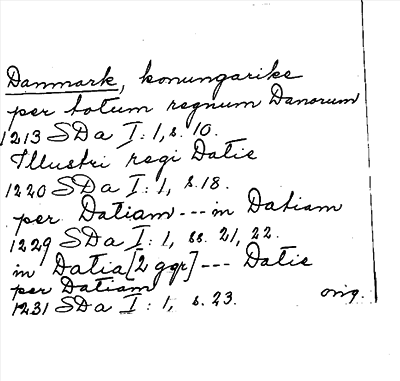 Danmark, konungarike
per totum regnum Danorum
1213 SDa I: 1, s. 10.
Illustri regi Datie
1220 SDa I: 1, s. 18.
per Datiam --- in Datiam
1229 SDa I: 1, ss. 21, 22.
in Datia [2 ggr] --- Datie
per Datiam
1231 SDa I: 1, s. 23. orig.